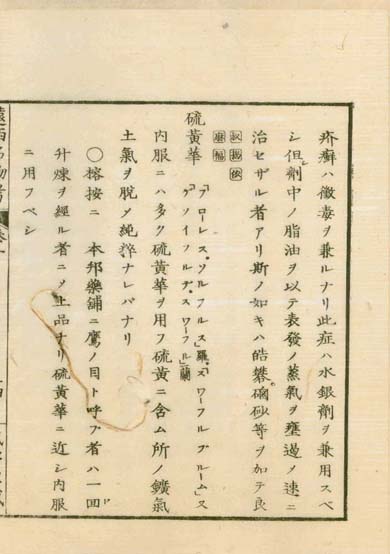 疥癬ハ黴毒ヲ兼ルナリ此症ハ水銀劑ヲ兼用スベ
シ但劑中ノ脂油ヲ以テ表發ノ蒸氣ヲ壅遏メ速ニ
治セザル者アリ斯ノ如キハ皓礬硇砂等ヲ加テ良
硫黄華
「フローレス、ソルフルス」羅「ズワーフルブルーム」ス
内服ニハ多ク硫黄華ヲ用フ硫黄ニ含ム所ノ鑛氣
土氣ヲ脱メ純粹ナレバナリ
〇榕按ニ 本邦藥舗ニ鷹ノ目ト呼フ者ハ一回
升煉ヲ經ル者ニメ上品ナリ硫黄華ニ近シ内服
ニ用フベシ